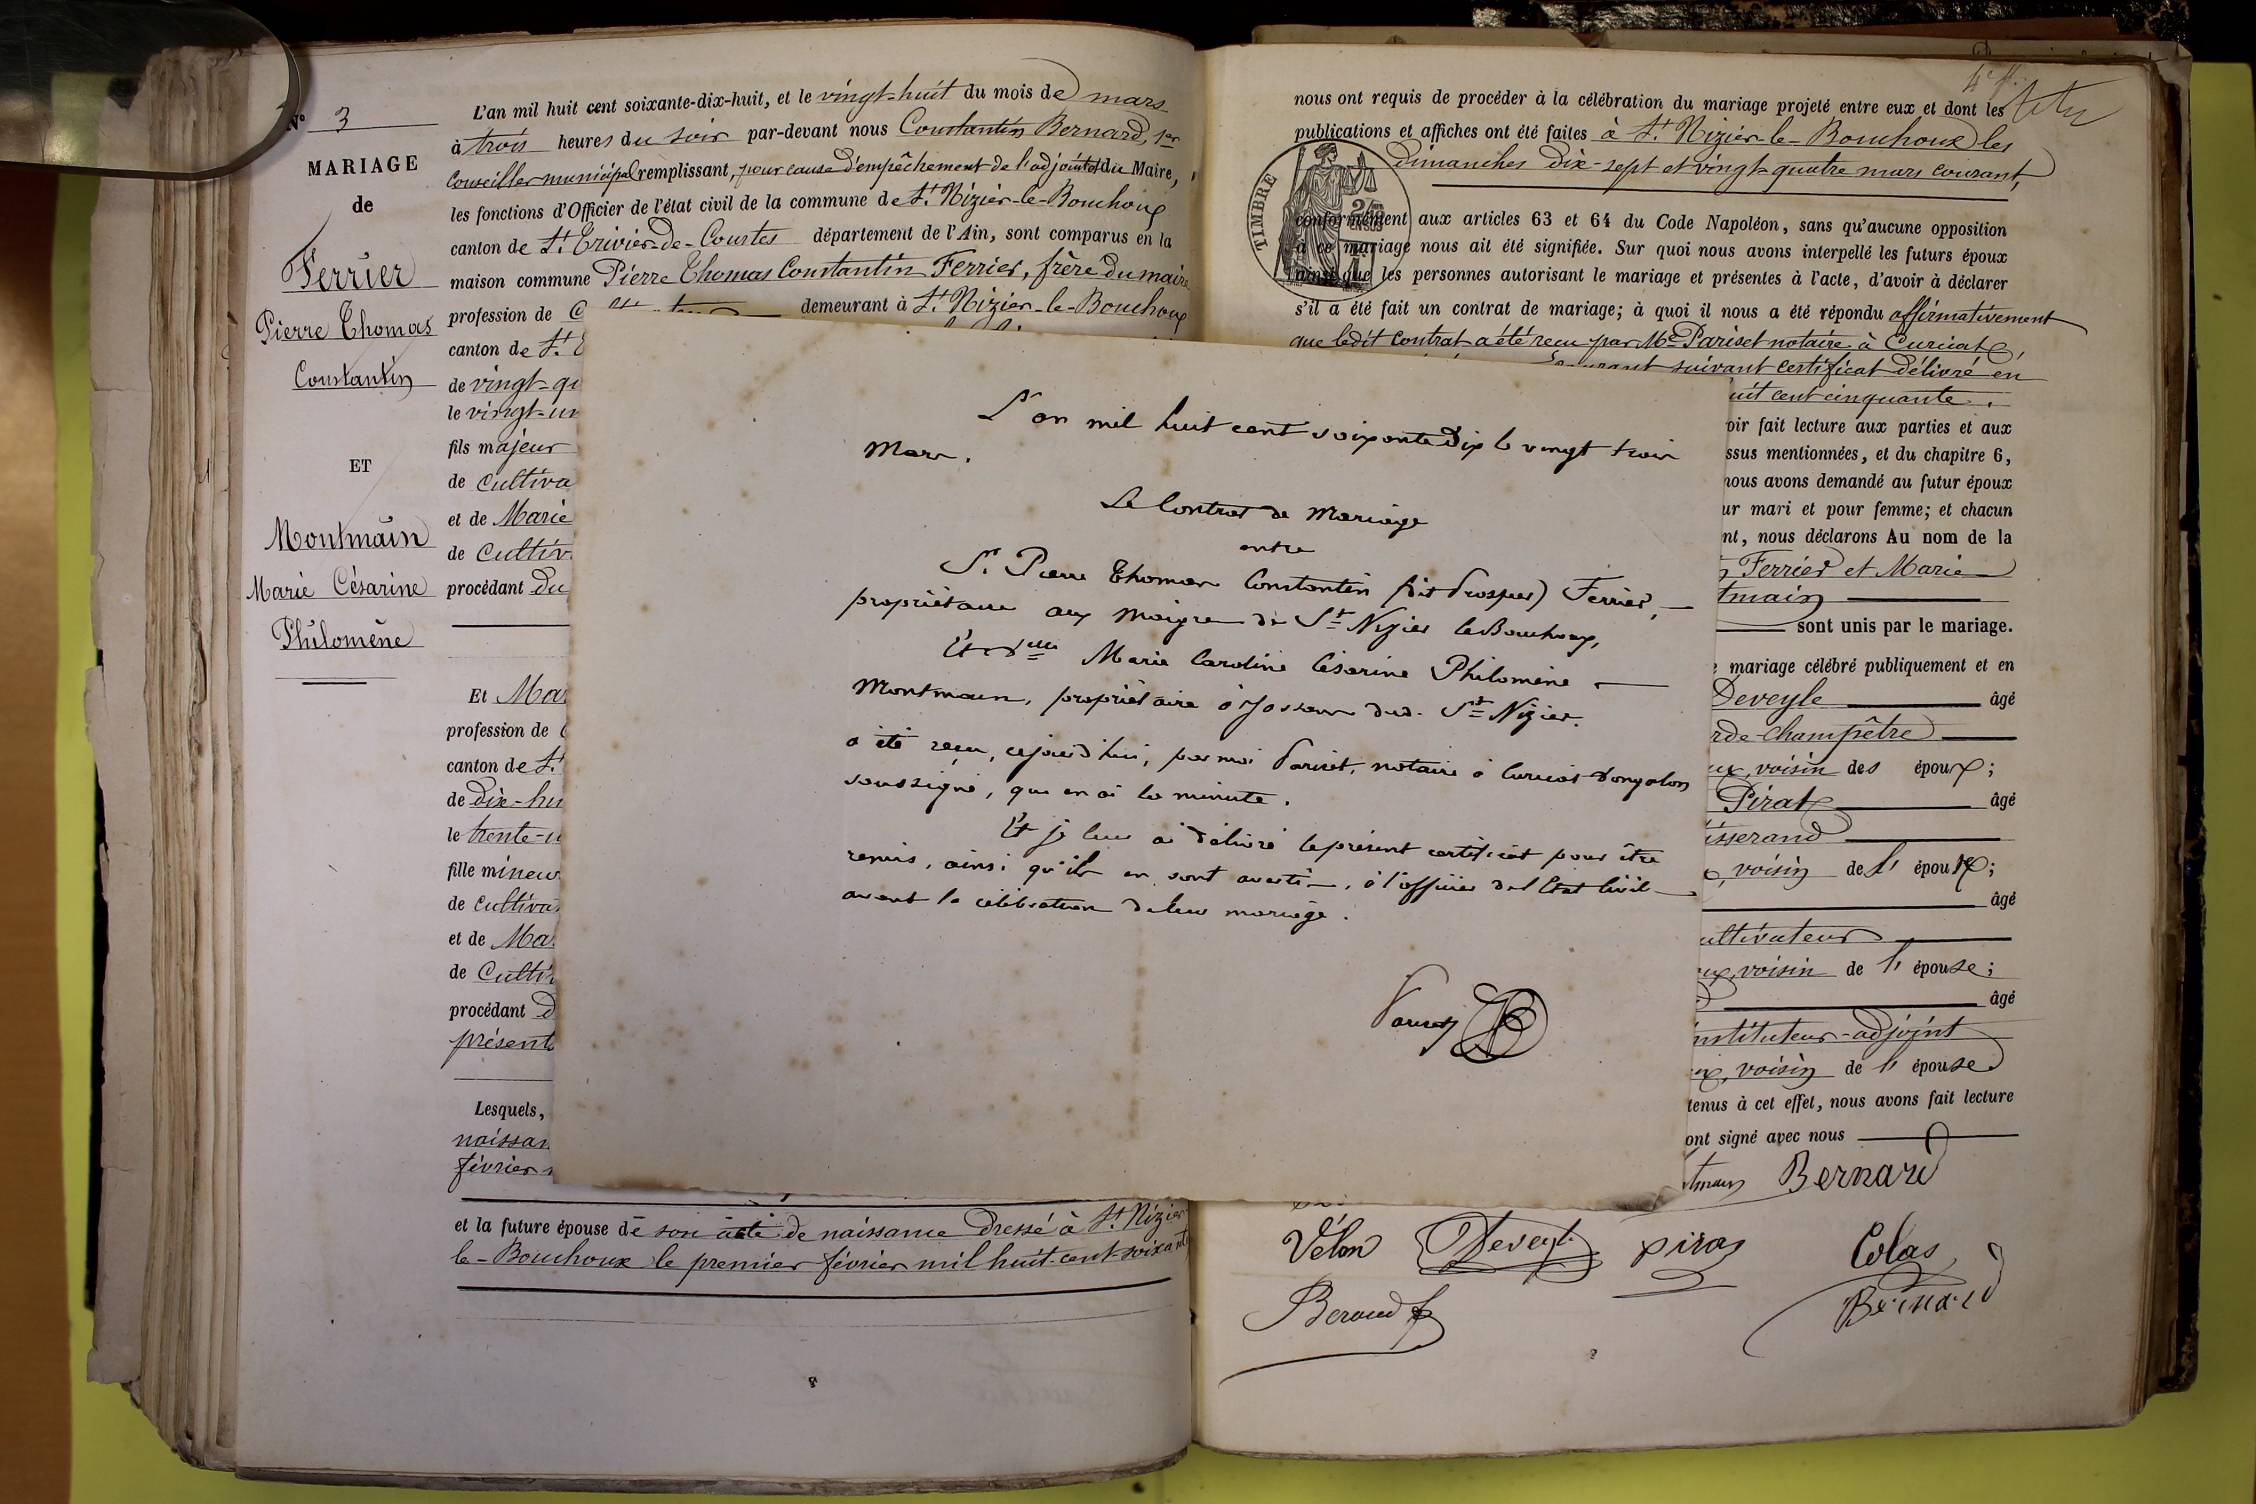 N° 3
MARIAGE
de
Ferrier
Pierre Thomas
Constantin
ET
Montmain
Marie Césarine
Philomène
L'an mil huit cent soixante-dix-huit, et le vingt-huit du mois de mars
à trois heures du soir par-devant nous Constantin Bernard, 1er
Conseiller municipal remplissant, pour cause d'empêchement de l'adjoint et du Maire,
les fonctions d'Officier de l'état civil de la commune de St Nizier-le-Bouchoux
canton de St Trivier-de-Courtes département de l'Ain, sont comparus en la
maison commune Pierre Thomas Constantin Ferrier, frère du maire
profession de demeurant à St Nizier-le-Bouchoux
canton de St
de vingt-
le vingt-un
fils majeur
de cultiva
et de Marie
de cultiv
procédant du
Et Mar
profession de
canton de St
de dix-hu
le trente-u
fille mineur
de cultiva
et de Mar
de Cultiv
procédant
présent
Lesquels,
naissan
février
et la future épouse de son acte de naissance dressé à St Nizier
le-Bouchoux le premier février mil huit-cent-soixante
L'an mil huit cent soixante Dix le vingt trois
Mars.
Le Contrat de Mariage
entre
Sr Pierre Thomas Constantin (dit Prosper) Ferrier,
propriétaire aux Maigre de St Nizier le Bouchoux,
Et Dlle Marie Caroline Césarine Philomène
Montmain, propriétaire à dud. St Nizier.
a été reçu, cejourd'hui, par moi Pariset, notaire à Curciat Dongalon
soussigné, qui en ai la minute.
Et je leur ai délivré le présent certificat pour être
remis, ainsi qu'ils en sont avertis, à l'officier de l'Etat Civil
avant la célébration de leur mariage.
Pariset
nous ont requis de procéder à la célébration du mariage projeté entre eux et dont les
publications et affiches ont été faites à St Nizier-le-Bouchoux les
dimanches dix-sept et vingt-quatre mars courant,
TIMBRE
conformément aux articles 63 et 64 du Code Napoléon, sans qu'aucune opposition
à ce mariage nous ait été signifiée. Sur quoi nous avons interpellé les futurs époux
ainsi que les personnes autorisant le mariage et présentes à l'acte, d'avoir à déclarer
s'il a été fait un contrat de mariage; à quoi il nous a été répondu affirmativement
que ledit contrat a été reçu par Me Pariset notaire à Curciat,
courant suivant certificat délivré en
uit cent cinquante.
oir fait lecture aux parties et aux
ssus mentionnées, et du chapitre 6,
nous avons demandé au futur époux
ur mari et pour femme; et chacun
nt, nous déclarons Au nom de la
Ferrier et Marie
tmain
sont unis par le mariage.
mariage célébré publiquement et en
Deveyle âgé
rde-champêtre
ux, voisin des époux;
Pirat âgé
isserand
voisin de l' époux;
âgé
ultivateur
ux, voisin de l' épouse;
âgé
nstituteur-adjoint
ux, voisin de l' épouse
tenus à cet effet, nous avons fait lecture
ont signé avec nous
tmain Bernard
Vélon Deveyle Pirat Colas
Beraud Bernard